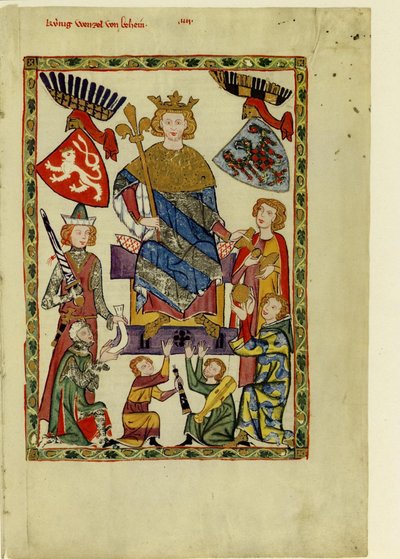 Kúnig wenzel von behein. .iiij.